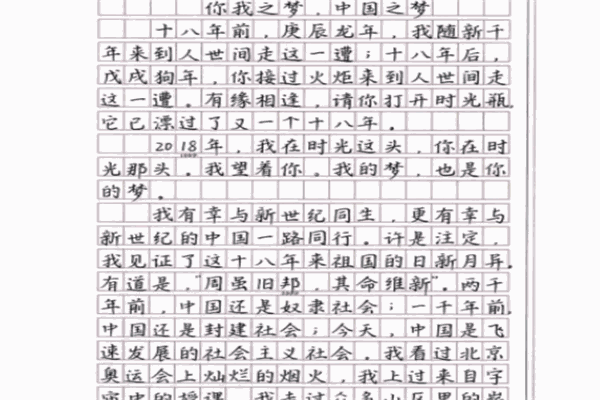 你我之梦，中国之梦
十八年前，庚辰龙年，我随新千
年来到人世间走这一遭；十八年后，
戊戌狗年，你接过火炬来到人世间走
这一遭。有缘相逢，请你打开时光瓶。
它已漂过了又一个十八年。
2018年，我在时光这头，你在时
光那头。我望着你。我的梦，也是你
的梦。
我有幸与新世纪同生，更有幸与
新世纪的中国一路同行。许是注定，
我见证了这十八年来祖国的日新月异。
有道是，“周虽旧邦，其命维新”。两千
年前，中国还是奴隶社会；一千年前，
中国还是封建社会；今天，中国是飞
速发展的社会主义社会。我看过北京
奥运会上灿烂的烟火，我上过来自宇
宙中的授课，我走过众多山区里的